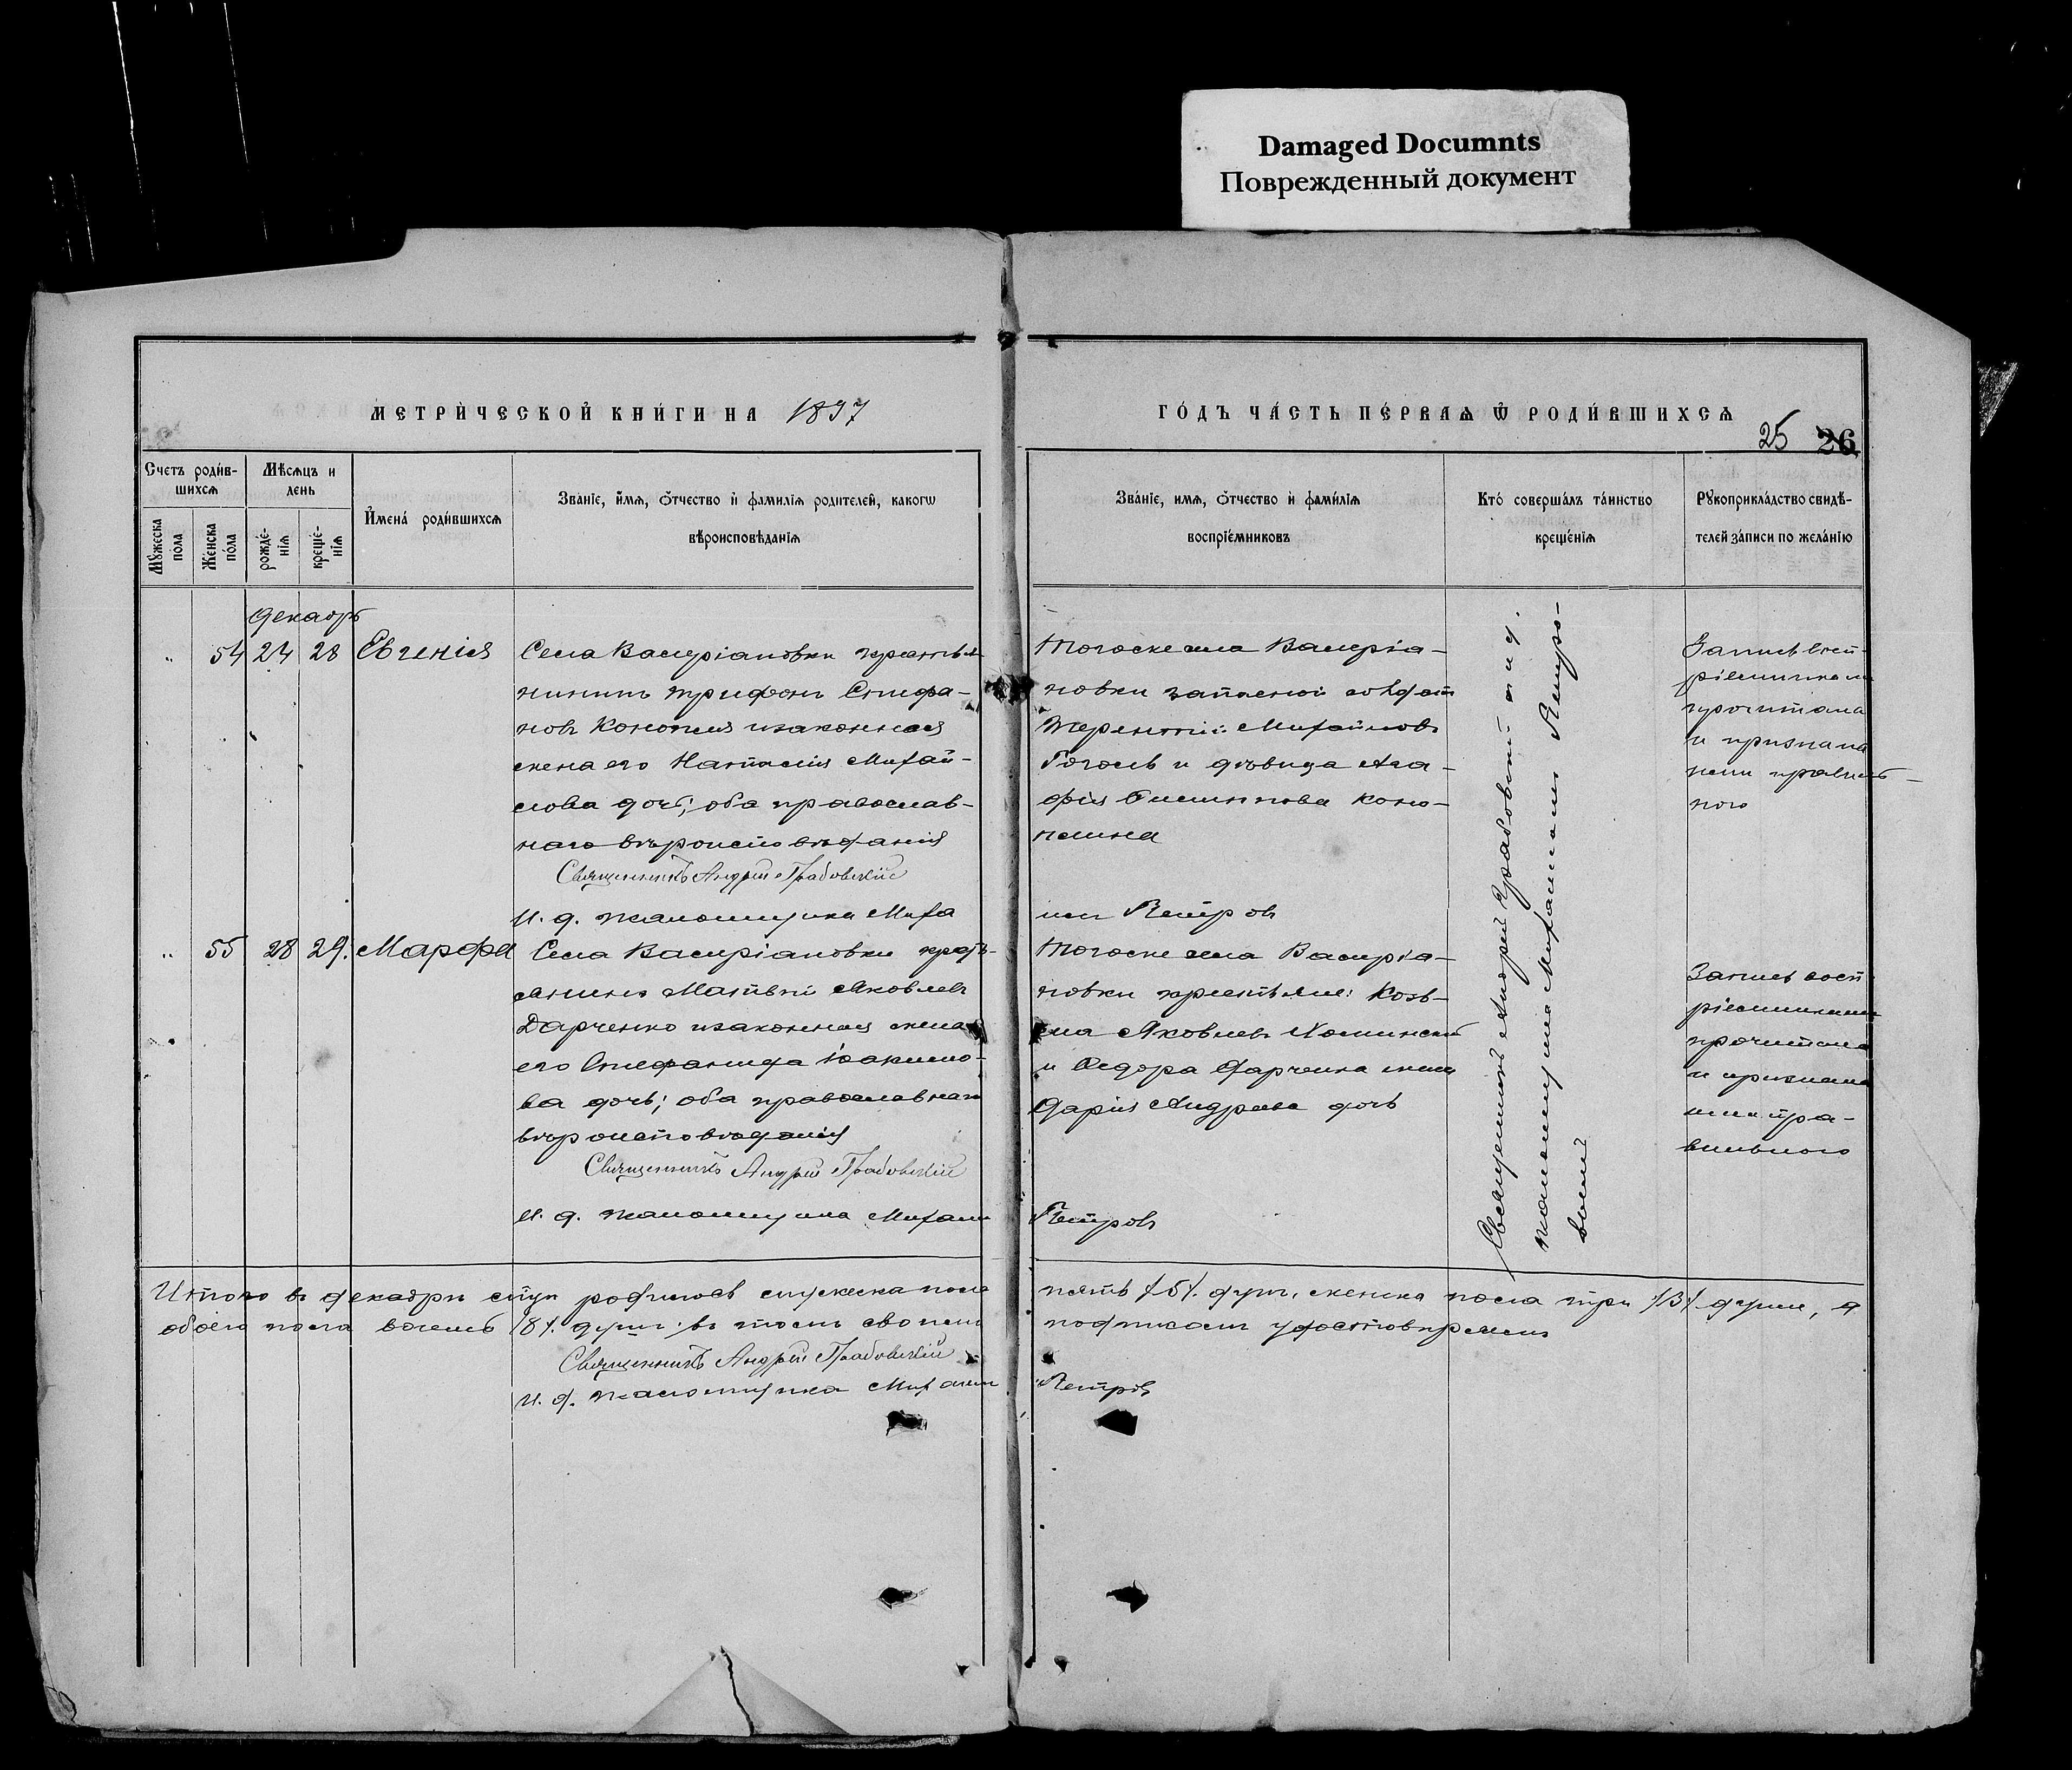 Damaged Documnts
Поврежденный документ
МЕТРИ́ЧЕСКОЙ КНИ́ГИ НА 1897
ГО́ДЪ ЧА́СТЬ ПЕ́РВАѦ Ѿ РОДИ́ВШИХСѦ
25 26
Счетъ роди́в-
шихсѧ
Мѣсѧцъ и
день
Мꙋжеска
по́ла
Же́нска
по́ла
рожде́-
нїѧ
креще́-
нїѧ
И҆мена́ роди́вшихсѧ
Зва́нїе, и҆́мѧ, ѻ҆́тчество и҆ фами́лїѧ роди́телей, како́гѡ
вѣроисповѣ́данїѧ
Зва́нїе, имѧ, ѻ҆́тчество и҆ фами́лїѧ
воспрїе́мниковъ
Кто́ соверша́лъ та́инство
креще́нїѧ
Рꙋкоприкла́дство свидѣ́-
телей за́писи по жела́нїю
Декабрь
" 54 24 28 Евгенія
Села Валеріановки крестья-
нинъ Трифонъ Стефа-
новъ Конопля и законная
жена его Наталія Михай-
лова дочь; оба православ-
наго вѣроисповѣданія
Священникъ Андрей Грабовскій
И. д. псаломщика Миха
Тогоже села Валеріа-
новки запасной солдатъ
Терентій Михайловъ
Гоголь и дѣвица Ага-
фія Коно-
плина
илъ Петровъ
Священникъ Андрей Грабовскій и и. д.
псаломщика Михаилъ Петро-
Запись восп-
ріемниками
прочитана
и признана
ими правиль-
ного
" 55 28 29. Марфа
Села Валеріановки кресть-
янинъ Матвей Яковлевъ
Дарченко и законная жена
его Стефанида Іоакимо-
ва дочь; оба православнаго
вѣроисповѣданія
Священникъ Андрей Грабовскій
И. д. псаломщика Михаилъ
Тогоже села Валеріа-
новки крестьяне: Козь-
ма Яковлевъ
и Ѳедора Дарченка жена
Дарія Андреева дочь
Петровъ
Запись восп-
ріемниками
прочитана
и признана
ими пра-
вильного
Итого въ декабрѣ родилось мужеска пола
пять /5/. душъ, женска пола три /3/ души, а
обоего пола восемь /8/. душъ; въ томъ своимъ
подписомъ удостовѣряемъ
Священникъ Андрей Грабовскій
И. д. псаломщика Михаилъ
Петровъ